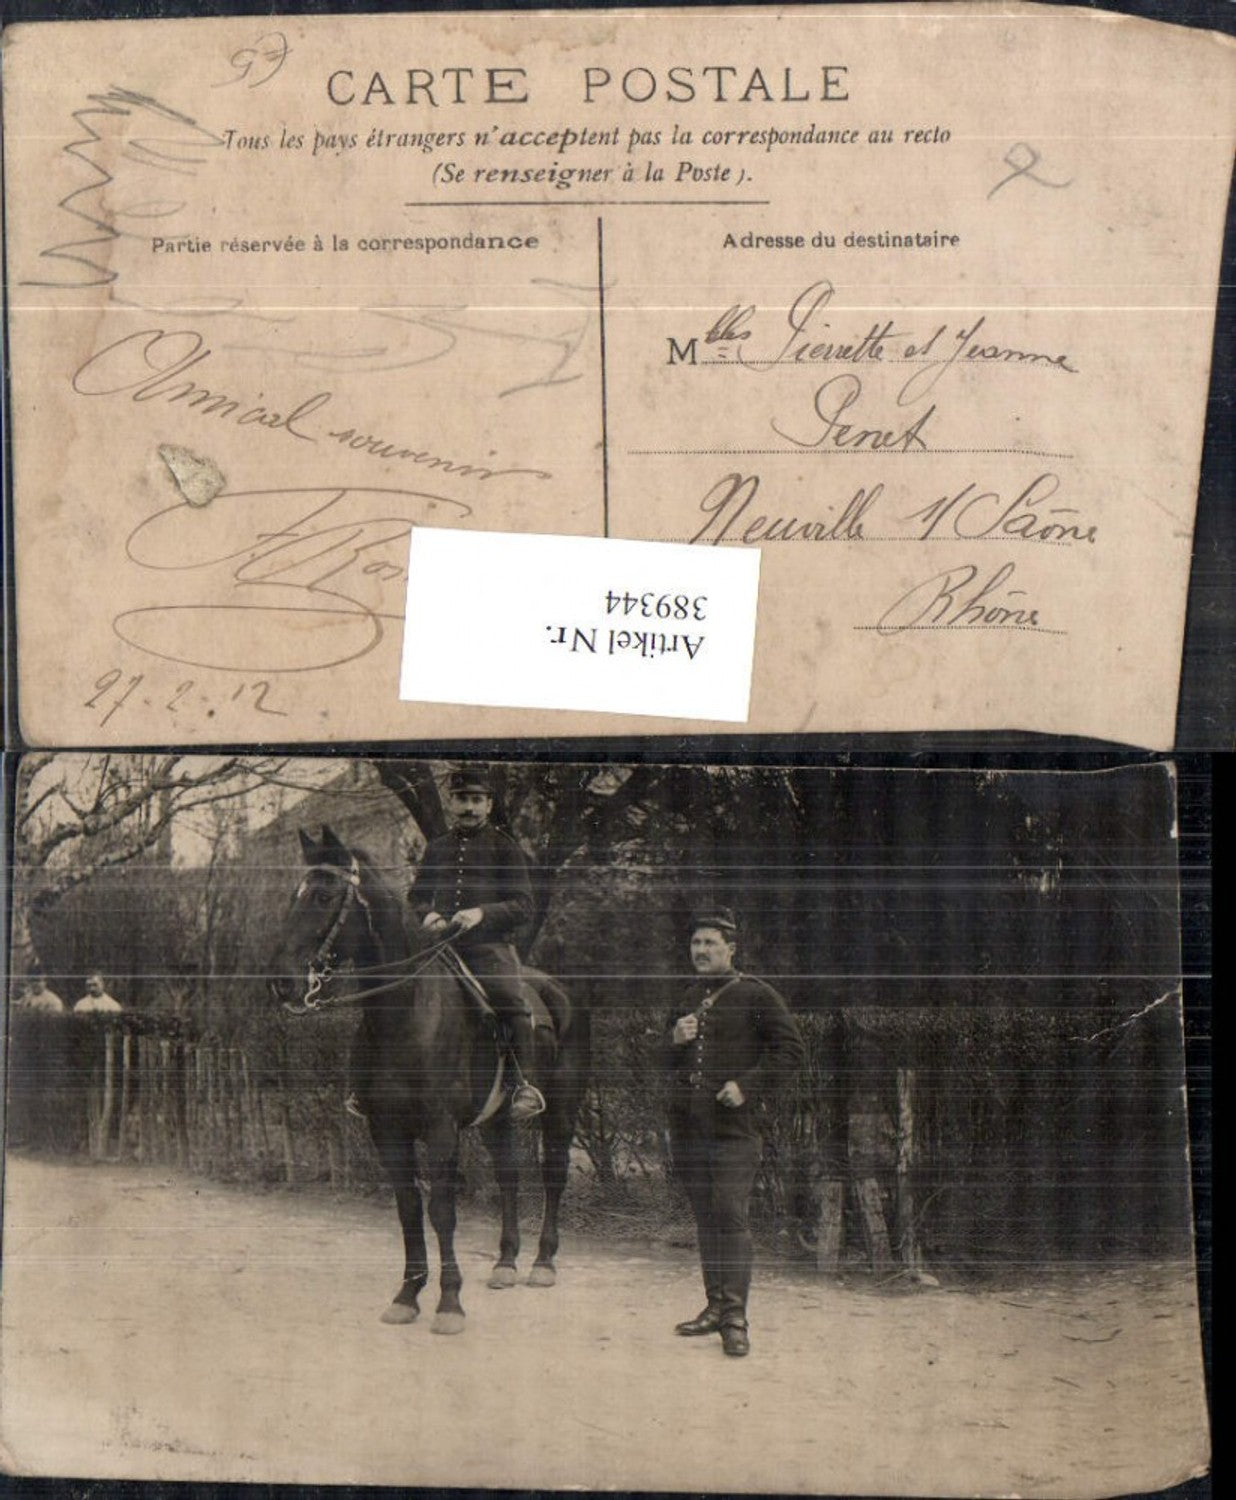 65
CARTE POSTALE
Tous les pays étrangers n'acceptent pas la correspondance au recto
(Se renseigner à la Poste).
Partie réservée à la correspondance
Adresse du destinataire
Amical souvenir
27-2-12
Mlles Pierrette et Jeanne
Penet
Neuville s/ Saône
Rhône
Artikel Nr.
389344